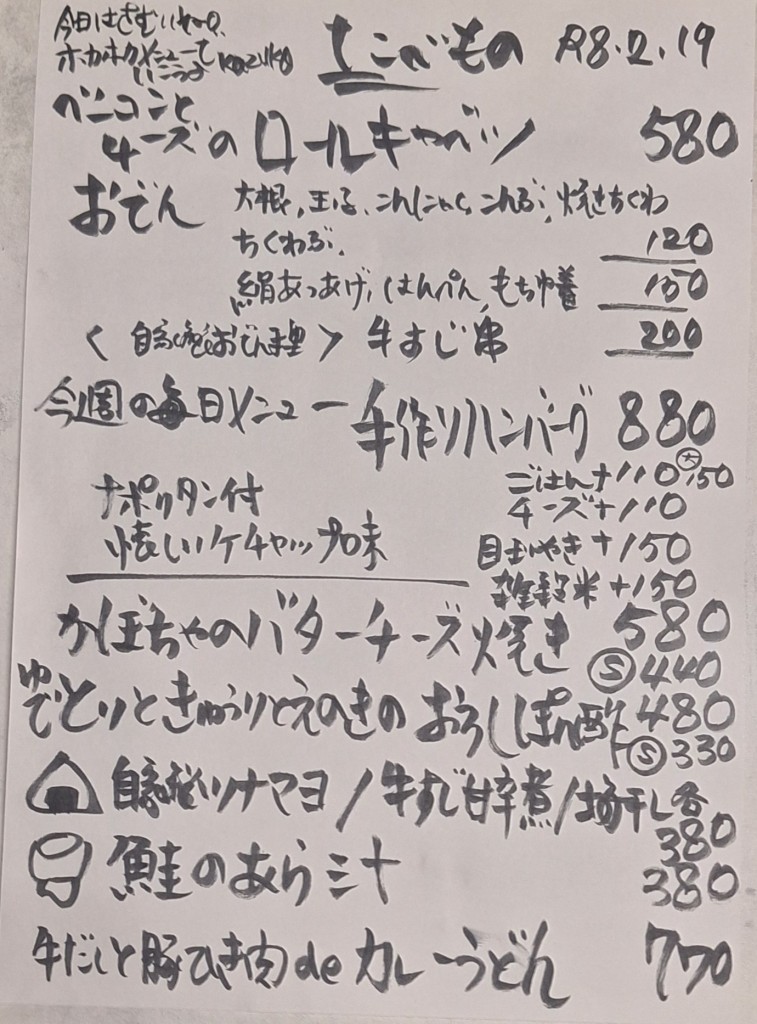 今日はさむいねー。
ホカホカメニューで
いこっよ KAZUKO
ちこべもの R8.2.19
ベーコンと
チーズのロールキャベツ 580
おでん 大根、玉子、こんにゃく、こんぶ、焼きちくわ
ちくわぶ、 120
絹あつあげ、はんぺん、もち巾着 150
牛すじ串 200
今週の毎日メニュー 手作りハンバーグ 880
ごはん+110 大150
ナポリタン付 チーズ+110
懐しいケチャップ味 目玉やき+150
雑穀米+150
かぼちゃのバターチーズ焼き 580
S 440
ゆでとりときゅうりとえのきのおろしぽん酢 480
S 330
自家製ツナマヨ/牛すじ甘辛煮/梅干し各
380
鮭のあら汁 380
牛だしと豚ひき肉deカレーうどん 770